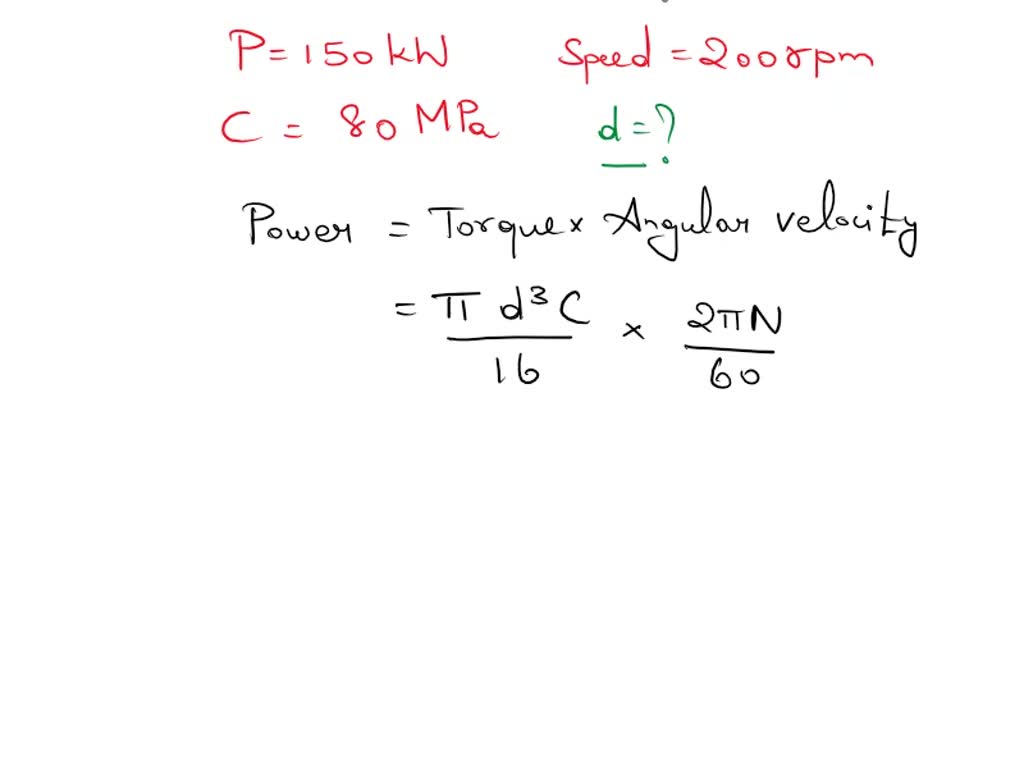 P = 150 kW Speed = 200rpm
C = 80 MPa d = ?
Power = Torque × Angular velocity
= π d³ C / 16 × 2πN / 60